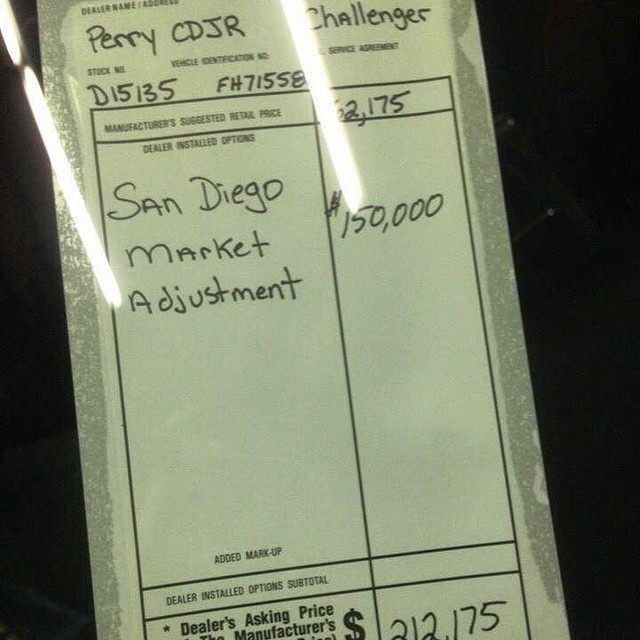 DEALER NAME / ADDRESS
Perry CDJR Challenger
STOCK NO. VEHICLE IDENTIFICATION NO. SERVICE AGREEMENT
D15135 FH71558
MANUFACTURER'S SUGGESTED RETAIL PRICE 62,175
DEALER INSTALLED OPTIONS
SAN DIEGO $150,000
MARKET
ADJUSTMENT
ADDED MARK-UP
DEALER INSTALLED OPTIONS SUBTOTAL
* Dealer's Asking Price $ 212,175
The Manufacturer's